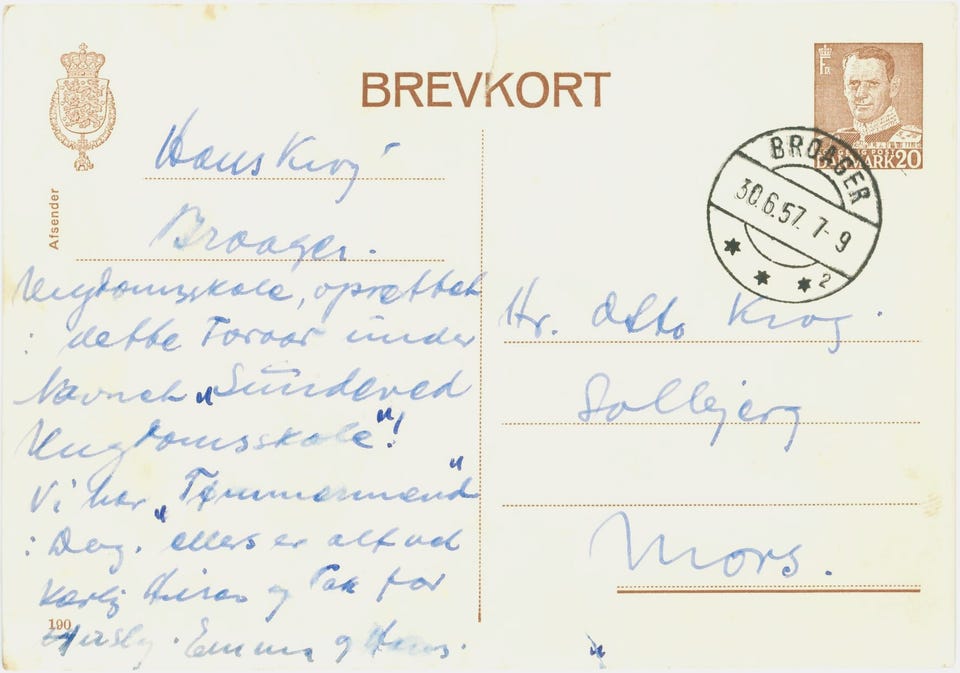 BREVKORT
Afsender
Hans Krog
Broager.
Ungdomsskole, oprettet
i dette Foraar under
Navnet "Sundeved
Ungdomsskole"!
Vi har "Tømmermænd"
i Dag. ellers er alt vel
Kærlig Hilsen og Tak for
Emma og Hans.
190
DANMARK 20
BROAGER
30.6.57. 7-9
2
Hr. Otto Krog.
Solbjerg
Mors.